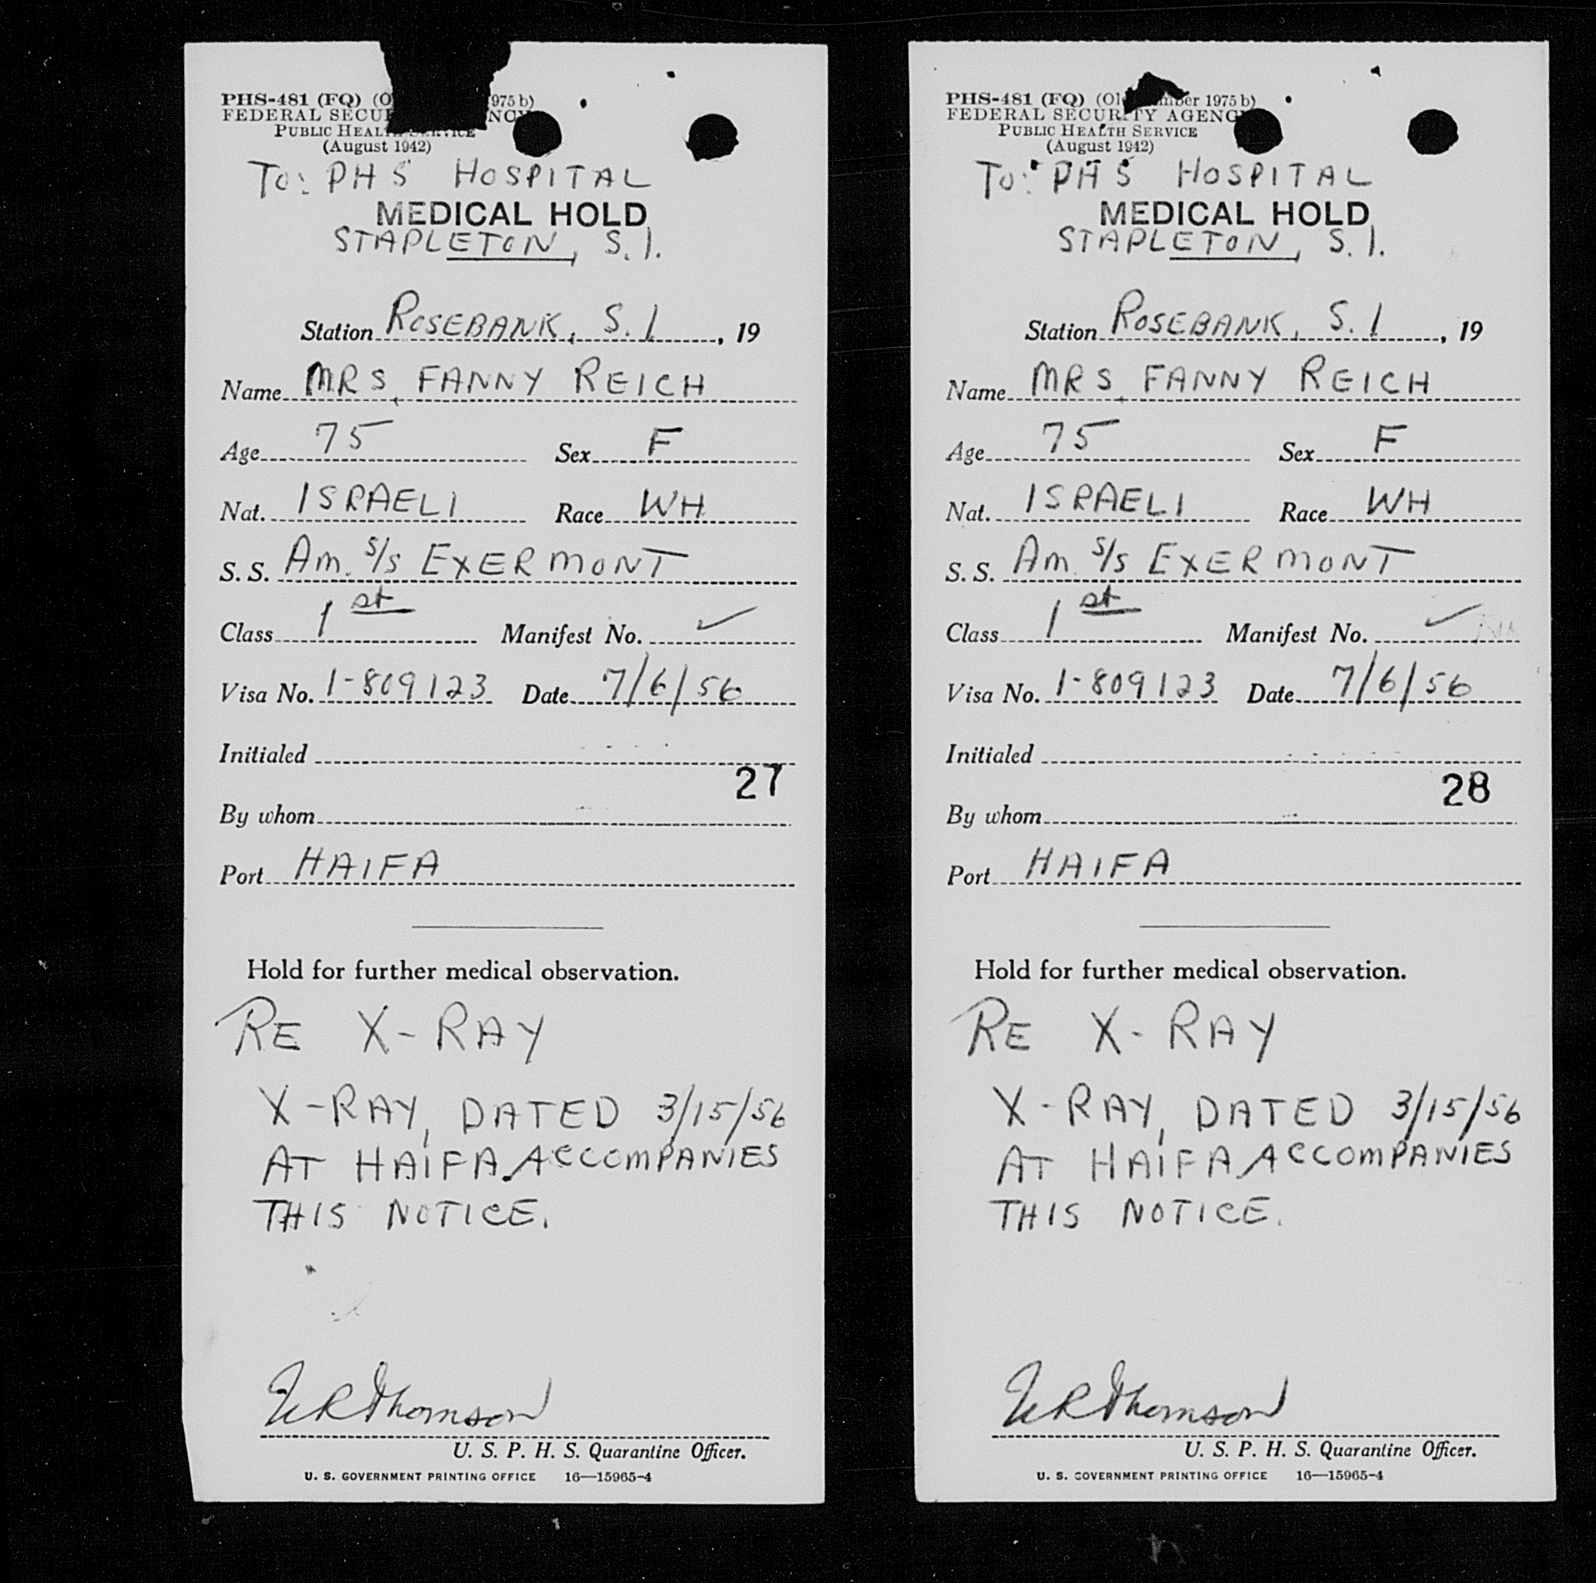 PHS-481 (FQ) (O 1975 b)
FEDERAL SECU NCY
PUBLIC HEALTH SERVICE
(August 1942)
To: PHS HOSPITAL
MEDICAL HOLD
STAPLETON, S.I.
Station ROSEBANK, S.I, 19
Name MRS. FANNY REICH
Age 75 Sex F
Nat. ISRAELI Race WH
S. S. Am. S/S EXERMONT
Class 1st Manifest No. ✓
Visa No. 1-809123 Date 7/6/56
Initialed
27
By whom
Port HAIFA
Hold for further medical observation.
RE X-RAY
X-RAY, DATED 3/15/56
AT HAIFA ACCOMPANIES
THIS NOTICE.
Thomson
U. S. P. H. S. Quarantine Officer.
U. S. GOVERNMENT PRINTING OFFICE 16—15965-4
PHS-481 (FQ) (Ol mber 1975 b)
FEDERAL SECURITY AGENC
PUBLIC HEALTH SERVICE
(August 1942)
To: PHS HOSPITAL
MEDICAL HOLD
STAPLETON, S.I.
Station ROSEBANK, S.I, 19
Name MRS. FANNY REICH
Age 75 Sex F
Nat. ISRAELI Race WH
S. S. Am. S/S EXERMONT
Class 1st Manifest No. ✓
Visa No. 1-809123 Date 7/6/56
Initialed
28
By whom
Port HAIFA
Hold for further medical observation.
RE X-RAY
X-RAY, DATED 3/15/56
AT HAIFA ACCOMPANIES
THIS NOTICE.
Thomson
U. S. P. H. S. Quarantine Officer.
U. S. GOVERNMENT PRINTING OFFICE 16—15965-4